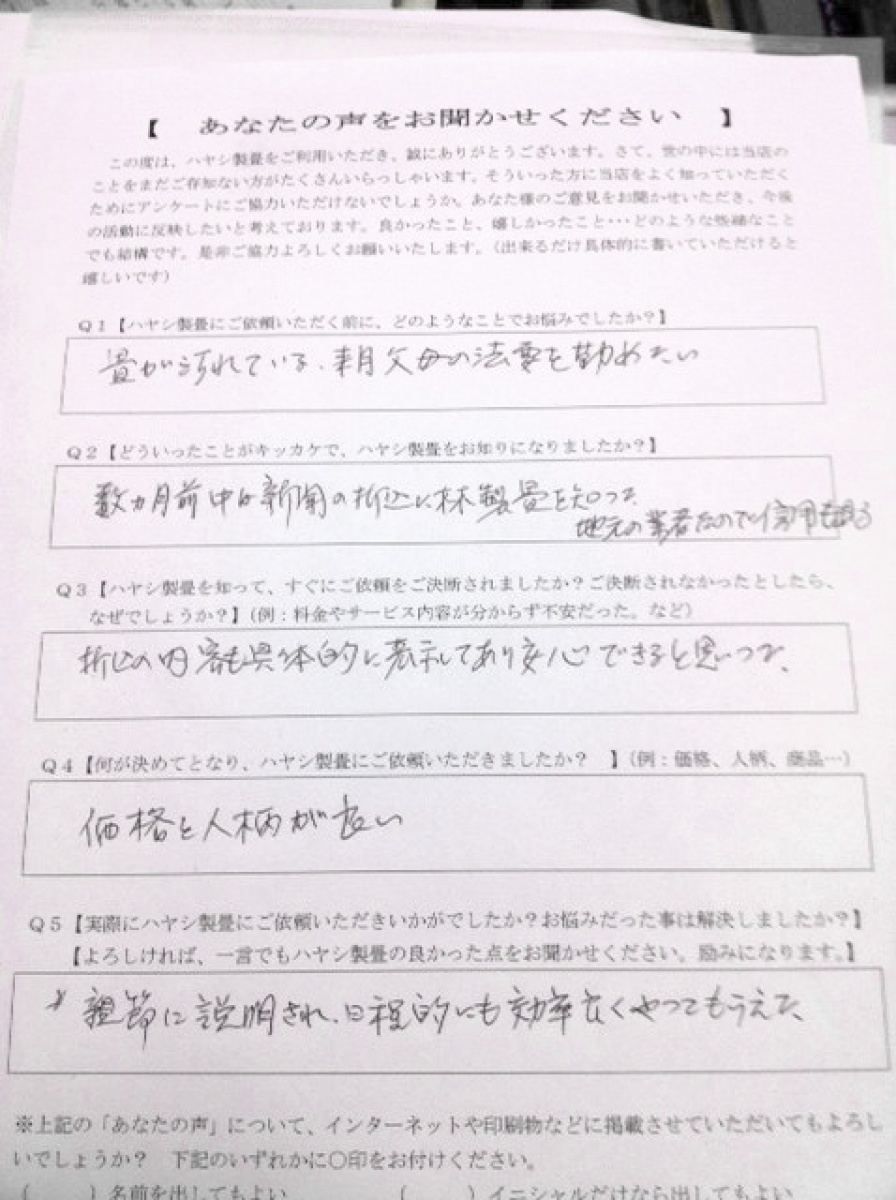 【 あなたの声をお聞かせください 】
この度は、ハヤシ製畳をご利用いただき、誠にありがとうございます。さて、世の中には当店の
ことをまだご存知ない方がたくさんいらっしゃいます。そういった方に当店をよく知っていただく
ためにアンケートにご協力いただけないでしょうか。あなた様のご意見をお聞かせいただき、今後
の活動に反映したいと考えております。良かったこと、嬉しかったこと…どのような些細なこと
でも結構です。是非ご協力よろしくお願いいたします。（出来るだけ具体的に書いていただけると
嬉しいです）
Q1【ハヤシ製畳にご依頼いただく前に、どのようなことでお悩みでしたか？】
畳が汚れている、来月父母の法要を勤めたい
Q2【どういったことがキッカケで、ハヤシ製畳をお知りになりましたか？】
数カ月前中日新聞の折込に林製畳を知った
地元の業者なので信用も
Q3【ハヤシ製畳を知って、すぐにご依頼をご決断されましたか？ご決断されなかったとしたら、
なぜでしょうか？】（例：料金やサービス内容が分からず不安だった。など）
折込の内容も具体的に表示してあり安心できると思った、
Q4【何が決めてとなり、ハヤシ製畳にご依頼いただきましたか？ 】（例：価格、人柄、商品…）
価格と人柄が良い
Q5【実際にハヤシ製畳にご依頼いただきいかがでしたか？お悩みだった事は解決しましたか？】
【よろしければ、一言でもハヤシ製畳の良かった点をお聞かせください。励みになります。】
親節に説明され、日程的にも効率良くやってもらえた、
※上記の「あなたの声」について、インターネットや印刷物などに掲載させていただいてもよろし
いでしょうか？ 下記のいずれかに○印をお付けください。
（ ）名前を出してもよい （ ）イニシャルだけなら出してもよい